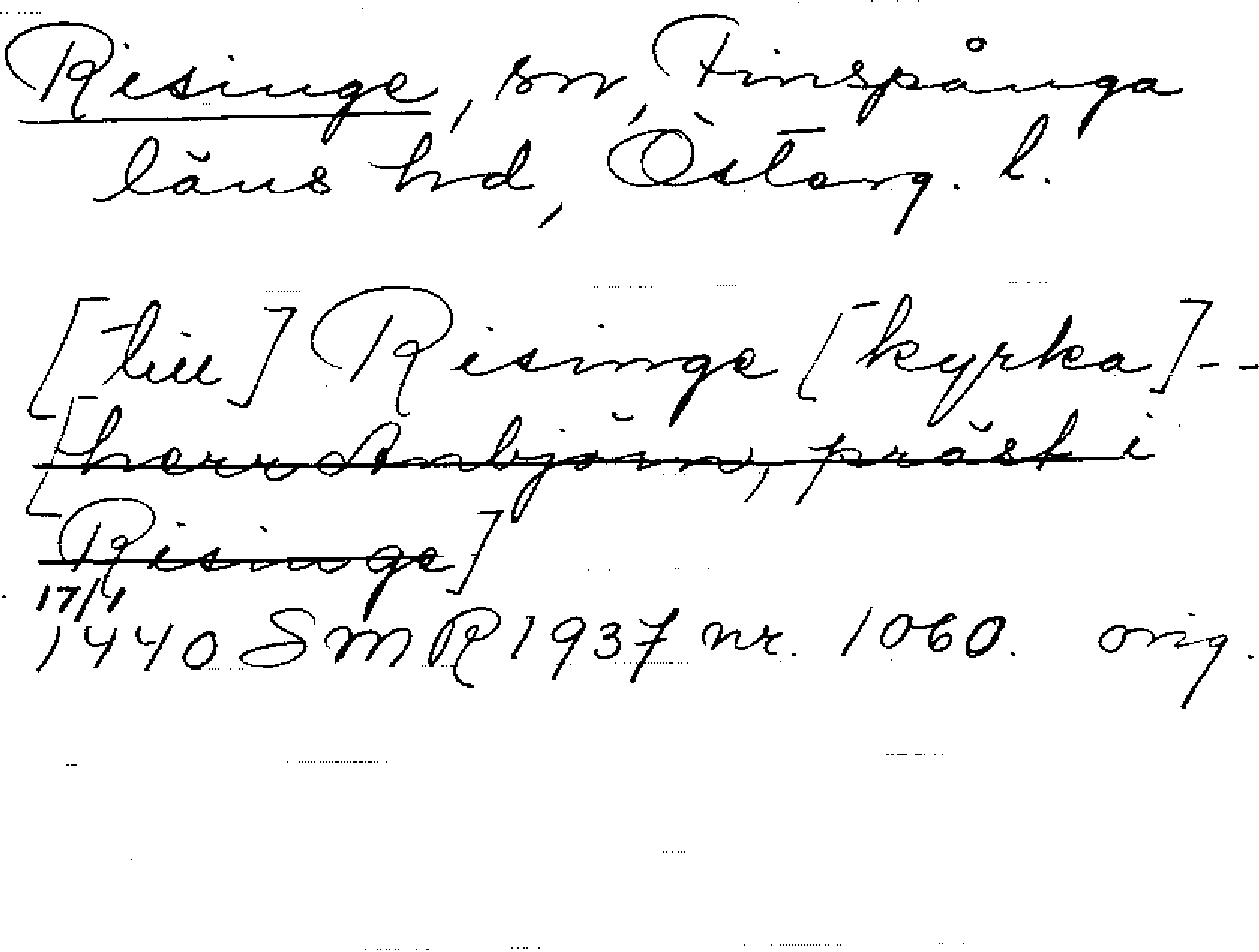 Risinge, sn, Finspånga
läns hd, Österg. l.
[till] Risinge [kyrka]--
[herr Anbjörn, präst i
Risinge]
17/1
1440 SMR 1937 nr. 1060. orig.